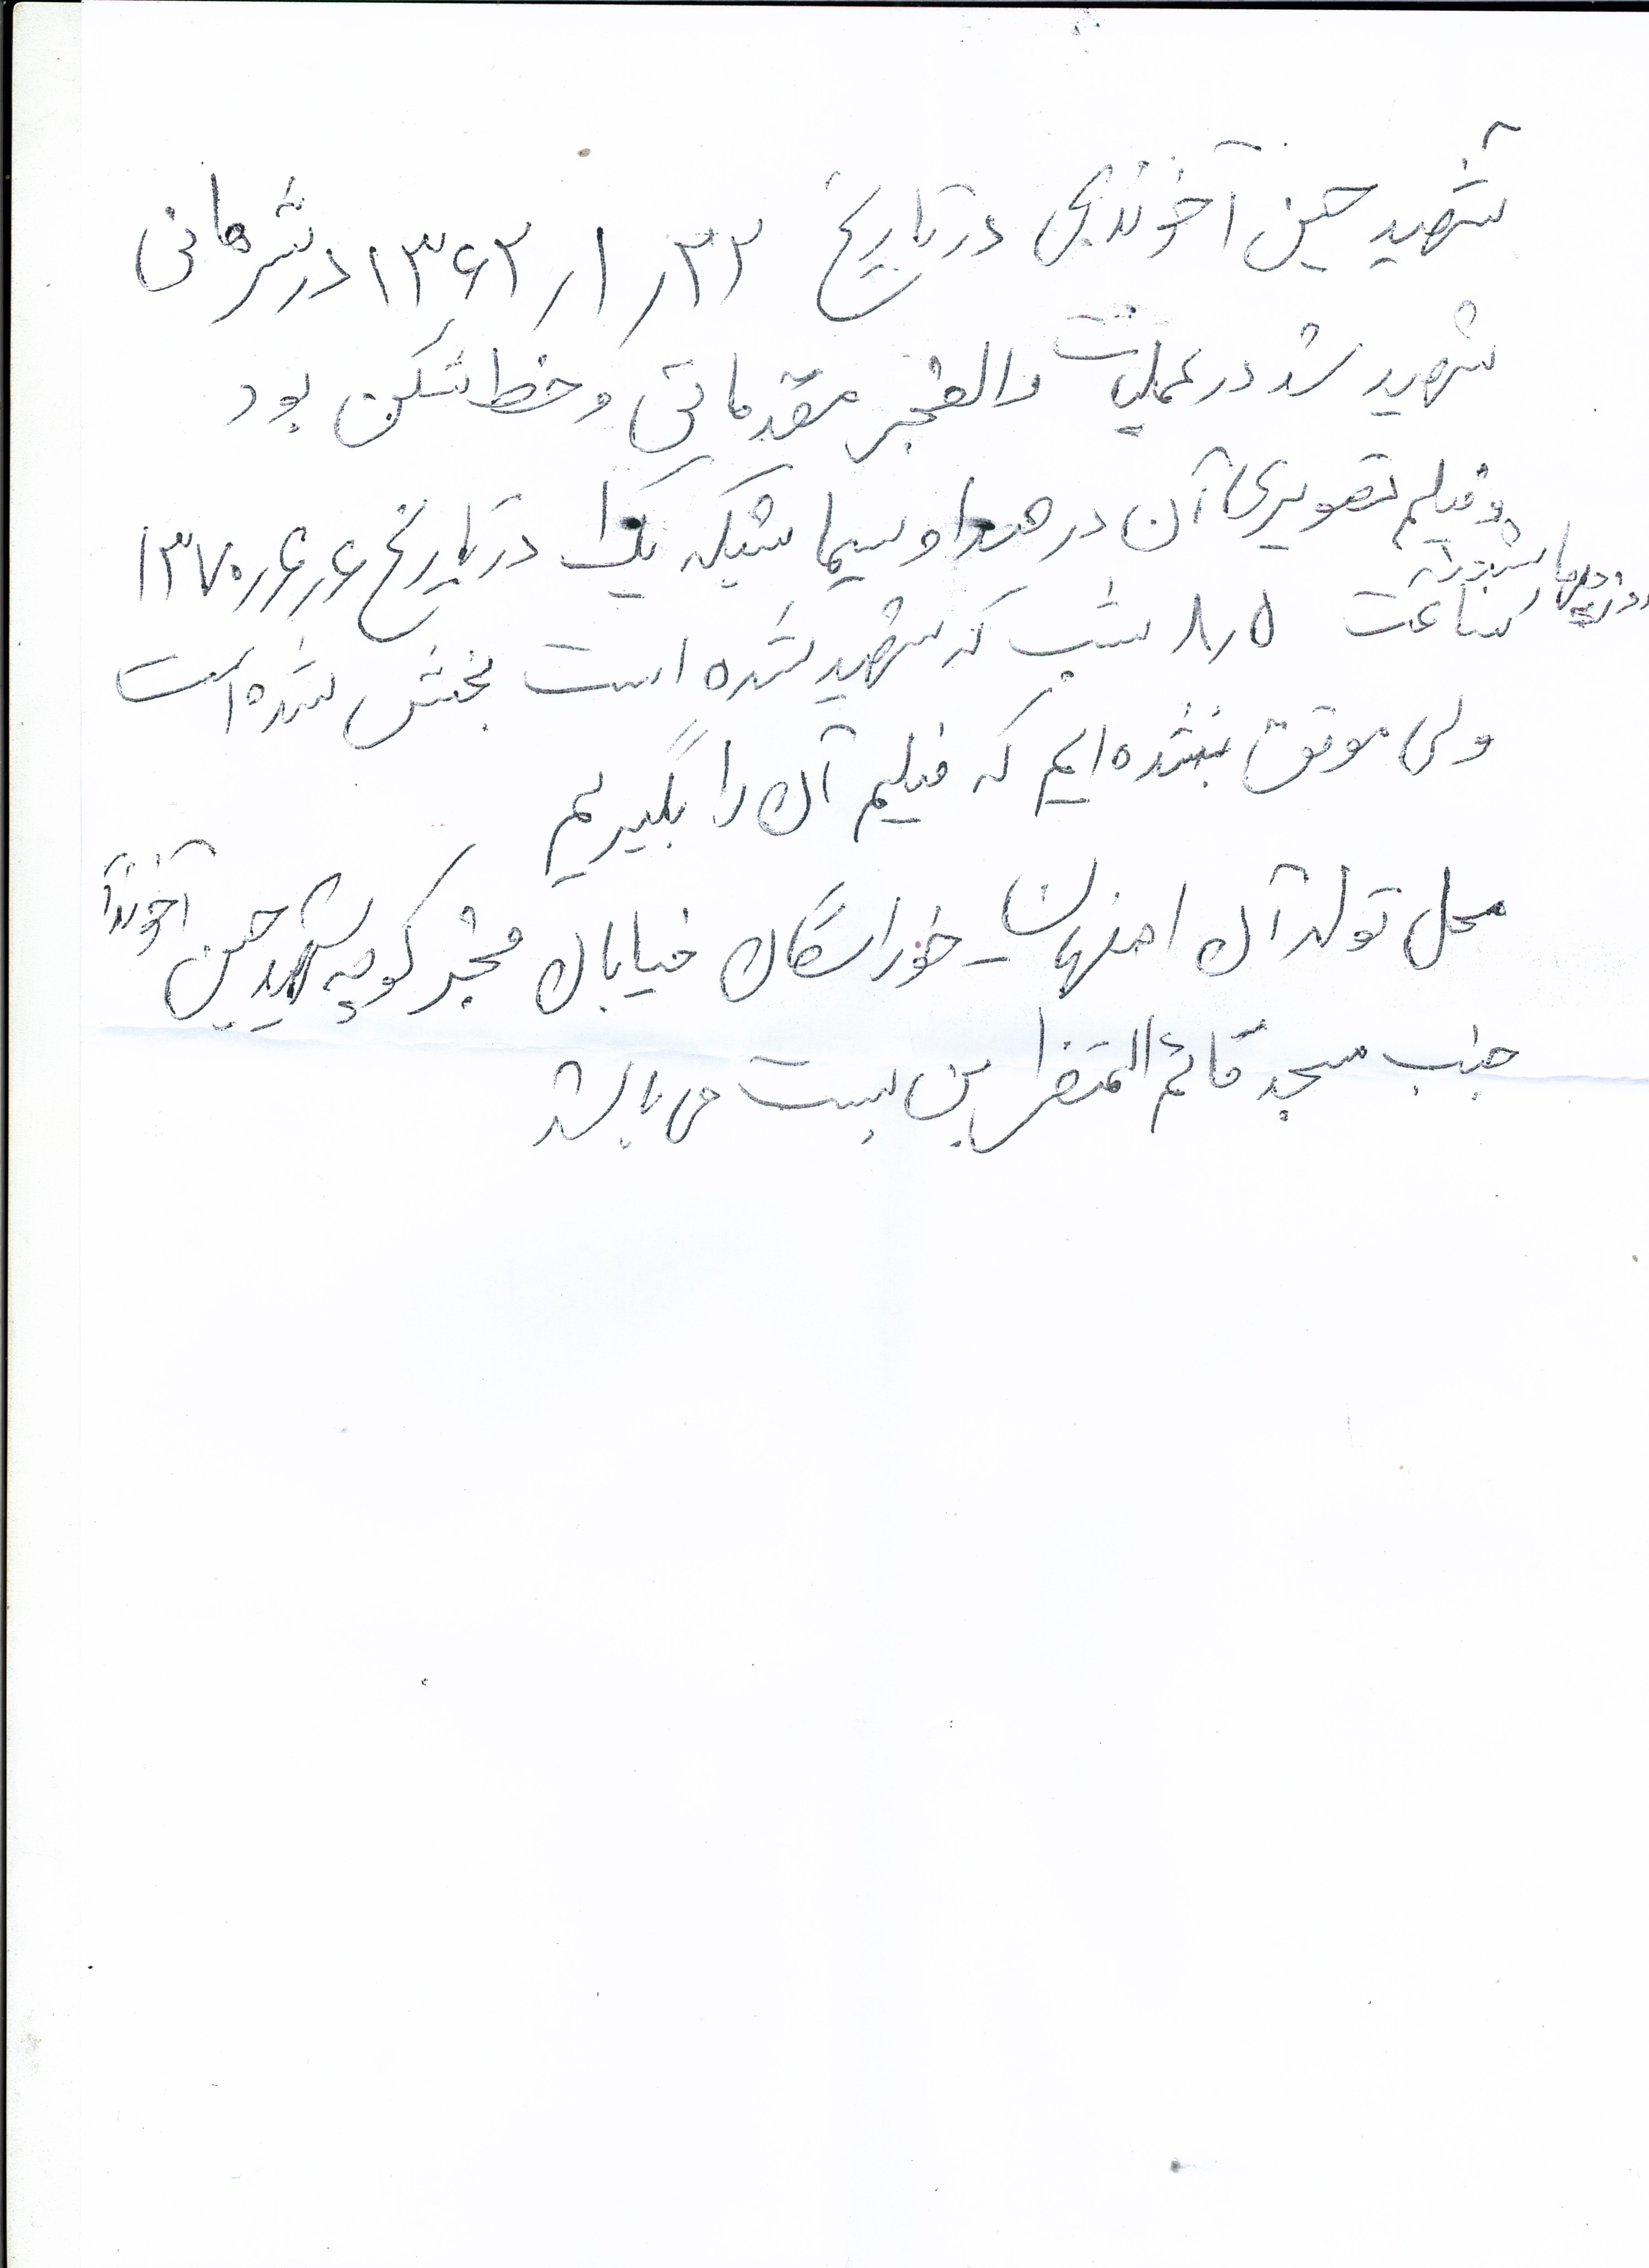 شهید حسین آخوندی در تاریخ ۲۲ر۱ر۱۳۶۲ در شرهانی
شهید شد در عملیات والفجر مقدماتی و خط شکن بود
و فیلم تصویری آن در صدا و سیما شبکه یک در تاریخ ۶ر۶ر۱۳۷۰
ساعت ۸ر۵ شب که شهید شده است پخش شده است
ولی موفق نشده ایم که فیلم آن را بگیریم
محل تولد آن اصفهان - خوراسگان خیابان فجر کوچه شهید حسین
جنب مسجد قائم المنتظر بن بست می باشد